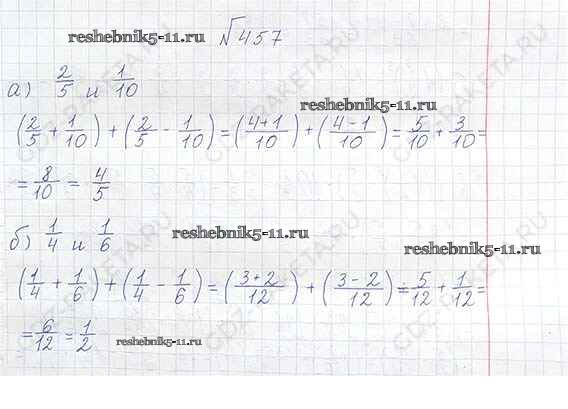 reshebnik5-11.ru √457
а) 2/5 и 1/10
reshebnik5-11.ru
(2/5 + 1/10) + (2/5 - 1/10) = (4+1/10) + (4-1/10) = 5/10 + 3/10 =
= 8/10 = 4/5
б) 1/4 и 1/6
reshebnik5-11.ru
reshebnik5-11.ru
(1/4 + 1/6) + (1/4 - 1/6) = (3+2/12) + (3-2/12) = 5/12 + 1/12 =
= 6/12 = 1/2
reshebnik5-11.ru
GDZ-RAKETA.RU
GDZ-RAKETA.RU
GDZ-RAKETA.RU